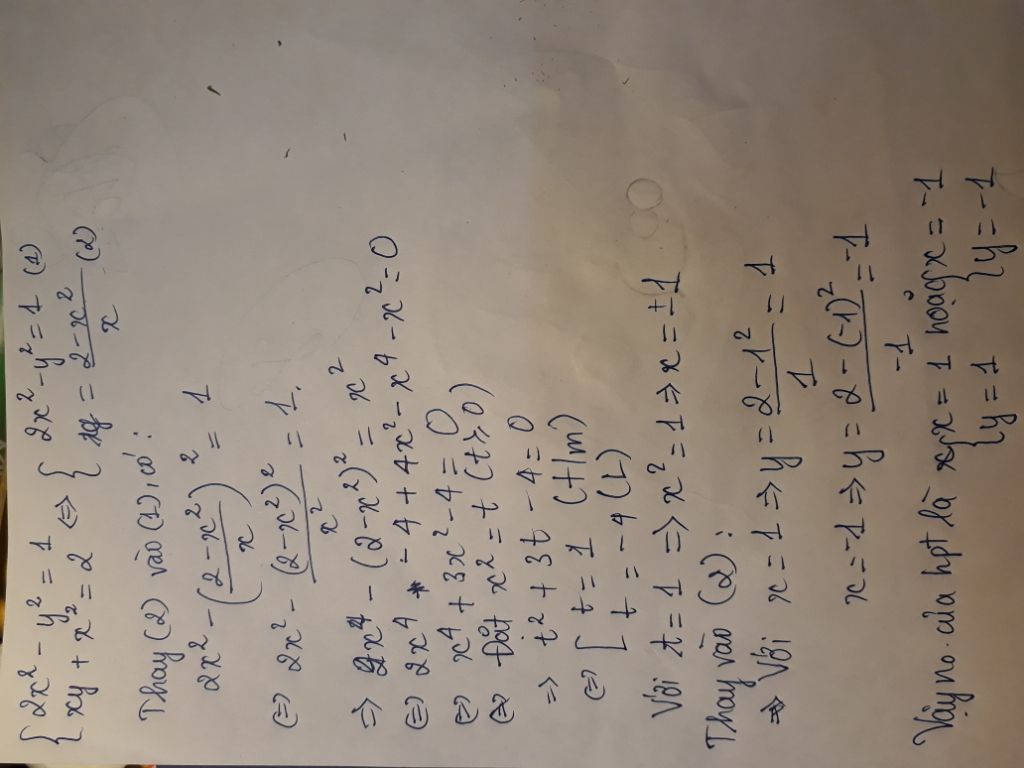 { 2x² - y² = 1 ⇔ { 2x² - y² = 1 (1)
{ xy + x² = 2 { y = (2 - x²)/x (2)
Thay (2) vào (1), có:
2x² - ((2 - x²)/x)² = 1
⇔ 2x² - (2 - x²)²/x² = 1.
⇒ 2x⁴ - (2 - x²)² = x²
⇔ 2x⁴ - 4 + 4x² - x⁴ - x² = 0
⇔ x⁴ + 3x² - 4 = 0
⇔ Đặt x² = t (t ≥ 0)
⇒ t² + 3t - 4 = 0
⇔ [ t = 1 (t/m)
[ t = -4 (L)
Với t = 1 ⇒ x² = 1 ⇒ x = ±1
Thay vào (2):
⇒ Với x = 1 ⇒ y = (2 - 1²)/1 = 1
x = -1 ⇒ y = (2 - (-1)²)/-1 = -1
Vậy no. của hpt là { x = 1 hoặc { x = -1
{ y = 1 { y = -1